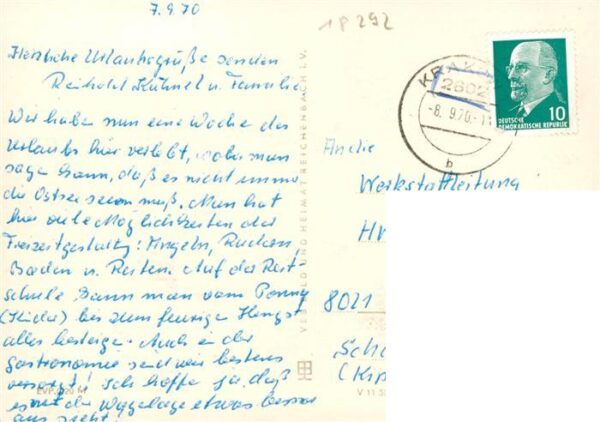 7.9.70
18 292
Herzliche Urlaubsgrüße senden
Reinhold Kühnel u. Familie
Wir haben nun eine Woche des
Urlaubs hier verlebt, wobei man
sagen kann, daß es nicht immer
die Ostsee sein muß. Man hat
hier viele Möglichkeiten der
Freizeitgestaltg: Angeln, Rudern
Baden u. Reiten. Auf der Reit-
schule kann man vom Ponny
(Kinder) bis zum feurigen Hengst
alles besteigen. Auch in der
Gastronomie sind wir bestens
versorgt! Ich hoffe ja, daß
es mit der Wagenlage etwas besser
aus sieht!
EVP
VEB BILD UND HEIMAT REICHENBACH I. V.
KRAK
2602
-8. 9.70.-11
b
10
DEUTSCHE
DEMOKRATISCHE REPUBLIK
An die
Werkstattleitung
8021
V 11